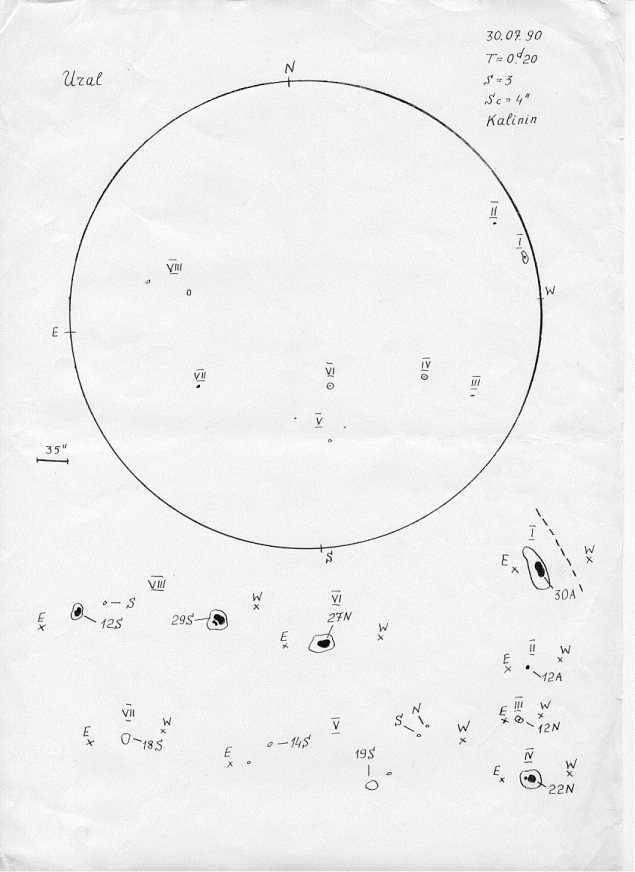 Ural
30.07.90
T=0.ᵈ20
S=3
Sc=4"
Kalinin
N
II
I
W
VIII
E
VII
VI
IV
III
V
35"
S
I
E
W
30A
VIII
S
W
E
12S
29S
VI
27N
E
W
II
E
W
12A
VII
E
W
18S
V
S
N
W
E
14S
19S
III
E
W
12N
IV
E
W
22N